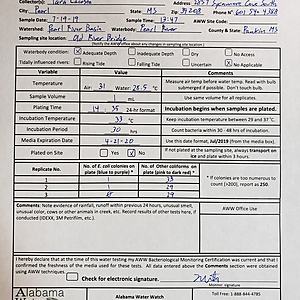 Collector(s): Tara
City: Pearl State: MS Zip: 39208 Phone #: 601 594-9388
Sample Date: 7-19-19 Sample Time: 13:47 AWW Site Code:
Watershed: Pearl River Basin Waterbody: Pearl River County & State: Rankin MS
Sampling site location: Old River Bridge
(Notify the AWW office about any changes in sampling site location)
Waterbody condition: Adequate Depth Inadequate Depth Dry No Access
Tidally influenced rivers: Rising Tide Ebbing Tide Uncertain Not Applicable
Variable Value Comments
Temperature Air: 31 Water: 28.5 °C Measure air temp before water temp. Read with bulb submerged if possible. Don't forget to include units.
Sample Volume mL Use same volume for all replicates.
Plating Time 14:35 24-hr format Incubation begins when samples are plated.
Incubation Temperature 33 °C Keep incubation temperature between 29 and 37°C.
Incubation Period 30 hrs Count bacteria within 30 - 48 hrs of incubation.
Media Expiration Date 4-21-20 Use this date format, Jul/2019 (from the media bottle).
Plated on Site Yes No If not plated at the sampling site, always transport on ice and plate within 3 hours.
Replicate No. No. E. coli colonies on plate (blue to purple)* No. Other coliforms on plate (pink to dark red)* If colonies are too numerous to count (>200), report as 250.
1 33
2 1 29
3 29
Comments: Note evidence of rainfall, runoff within previous 24 hours, unusual smell, unusual color, cows or other animals in creek, etc. Record results of other tests here, if conducted (IDEXX, 3M Petrifilm, etc.)
AWW Office Use
I hereby declare that at the time of this water testing my AWW Bacteriological Monitoring Certification was current and that I confirmed the freshness of the media used for these tests. All data entered above the Comments section were obtained using AWW techniques.
Check for electronic signature.
Alabama
Alabama Water Watch
Toll Free: 1-888-844-4785